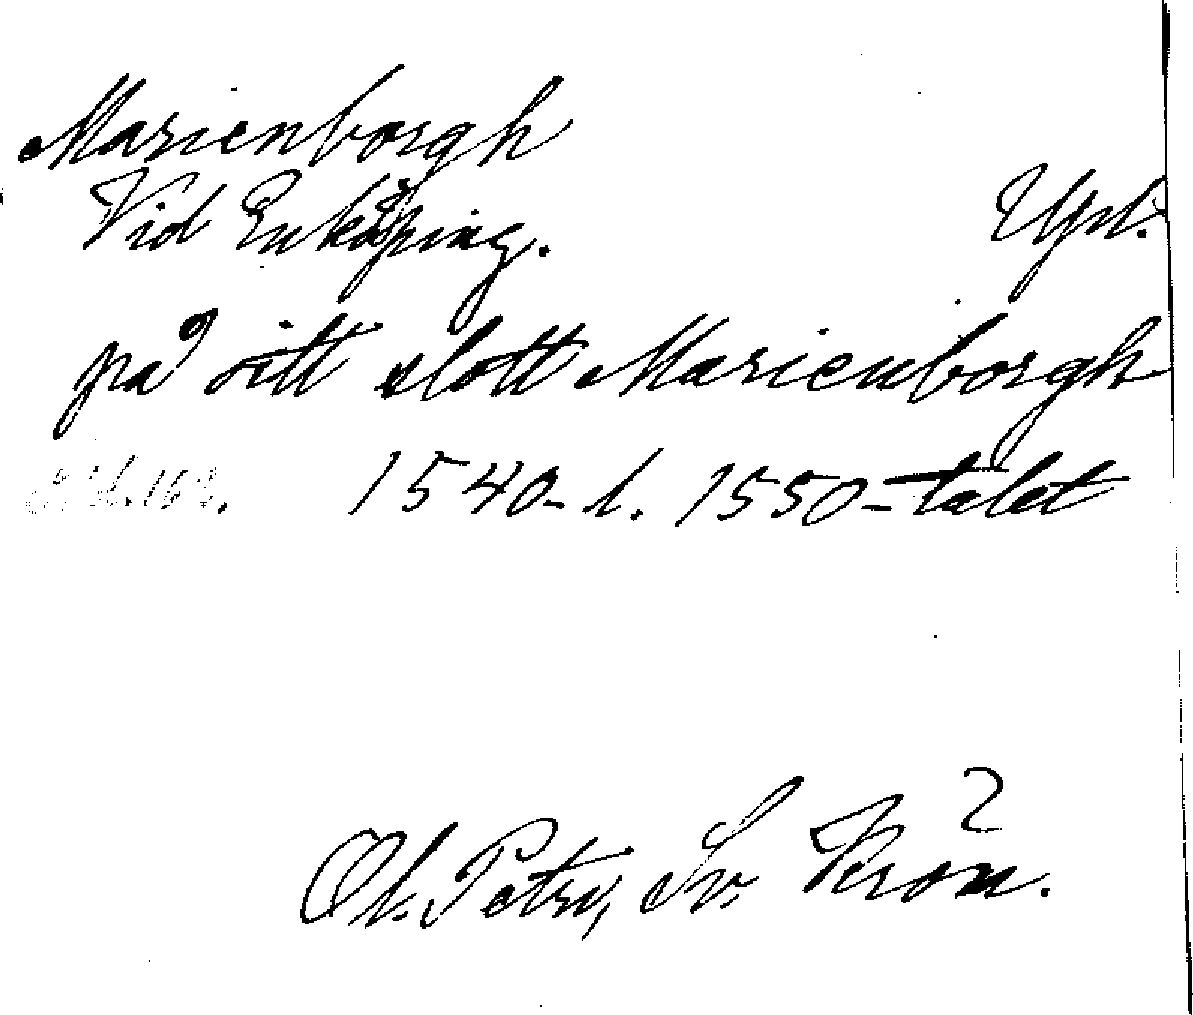 Marienborgh
Vid Enköping. Upl.
på sitt slott Marienborgh
1540- l. 1550-talet
2
Ol. Petri, Sv. Krön.